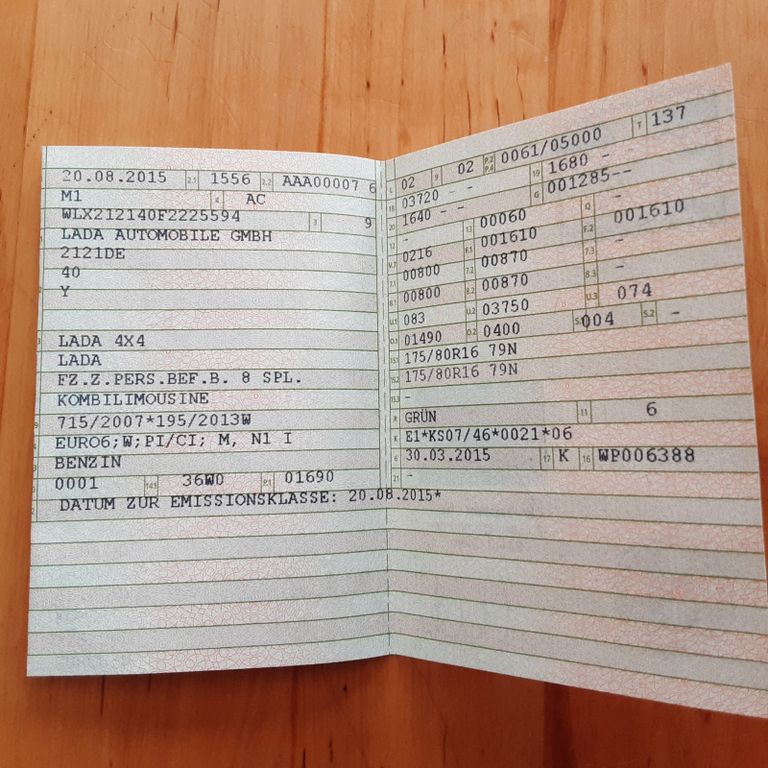 20.08.2015 2.1 1556 2.2 AAA00007 6
M1 4 AC
WLX212140F2225594 3 9
LADA AUTOMOBILE GMBH
2121DE
40
Y
LADA 4X4
LADA
FZ.Z.PERS.BEF.B. 8 SPL.
KOMBILIMOUSINE
715/2007*195/2013W
EURO6;W;PI/CI; M, N1 I
BENZIN
0001 14.1 36W0 P.1 01690
DATUM ZUR EMISSIONSKLASSE: 20.08.2015*
L 02 9 02 P.2 P.4 0061/05000 T 137
18 03720 - - 19 1680 -
20 1640 - - G 001285--
12 - 13 00060 Q -
V.7 0216 F.1 001610 F.2 001610
7.1 00800 7.2 00870 7.3 -
8.1 00800 8.2 00870 8.3 -
U.1 083 U.2 03750 U.3 074
O.1 01490 O.2 0400 S.1 004 S.2 -
15.1 175/80R16 79N
15.2 175/80R16 79N
15.3 -
R GRÜN 11 6
K E1*KS07/46*0021*06
6 30.03.2015 17 K 16 WP006388
21 -